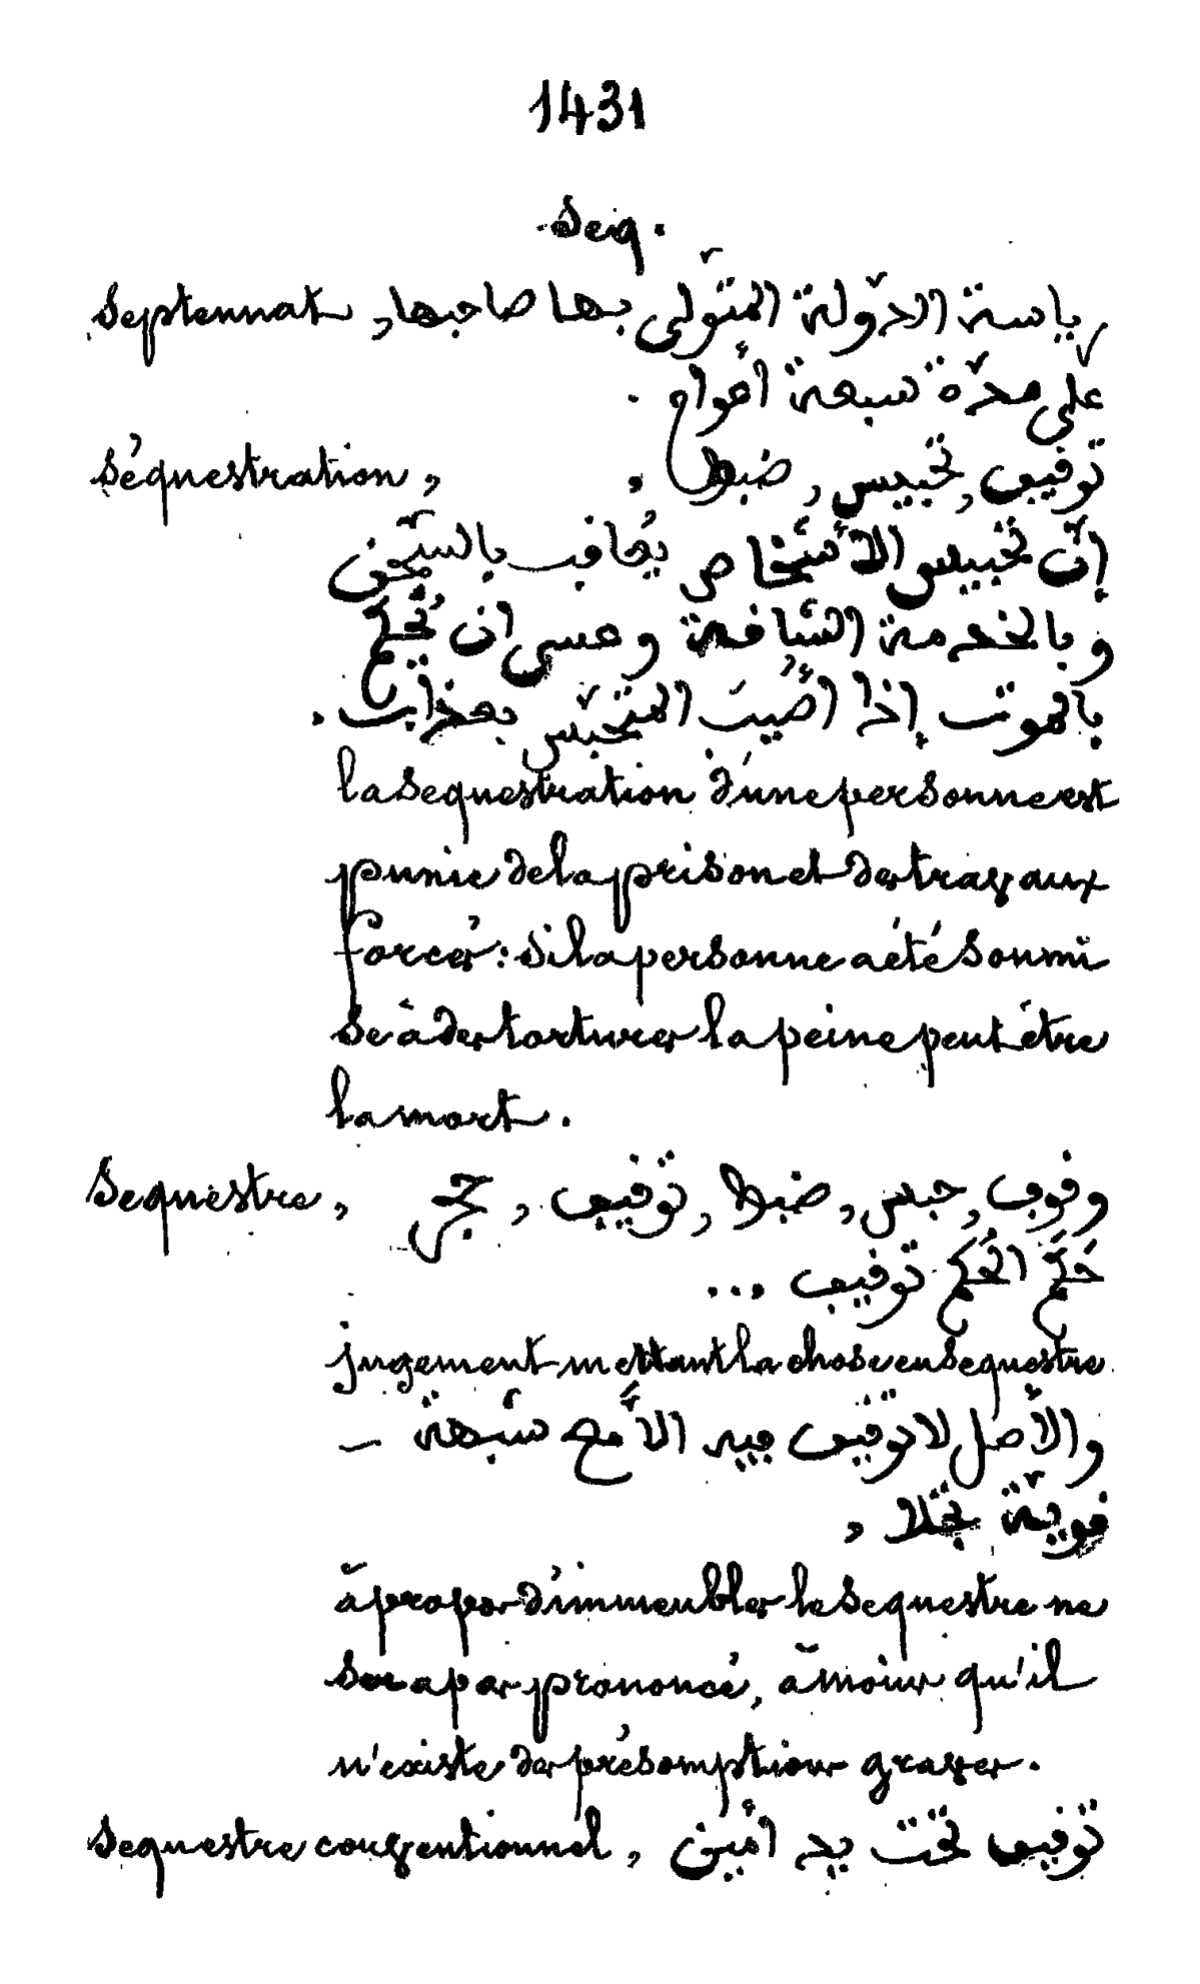 1431
Seq.
Septennat, رياسة الدّولة المتولّى بها صاحبها
على مدّة سبعة أعوام .
Séquestration, توفيف, تحبيس, ضبط ,
إنّ تحبيس الأشخاص يُعافب بالسّجن
وبالخدمة الشّافة وعسى ان يُحكم
بالموت إذا أصُيبَ المتحبّس بعذاب .
la sequestration d'une personne est
punie de la prison et des travaux
forcés : si la personne a été soumi
se à des tortures la peine peut être
la mort .
Sequestre, وفوف, حبس, ضبط, توفيف, حجر
حَكَمَ الحُكم توفيف ...
jugement mettant la chose en sequestre
والأصل لا توفيف فيه الا مع شبهة –
فويّة بخلا ,
à propos d'immeubles le sequestre ne
sera pas prononcé, à moins qu'il
n'existe des présomptions graves .
Sequestre conventionnel, توفيف تحت يد أمين